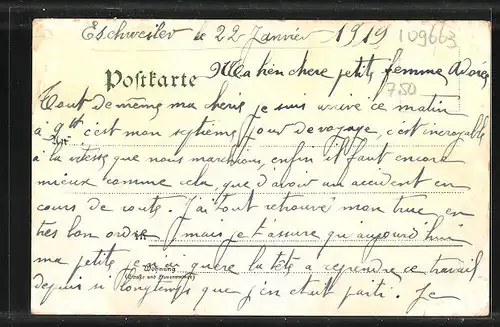 Eschweiler le 22 Janvier 1919
109663
Postkarte
Ma bien chere petite femme Adorée
750
Tout de même ma cherie je suis arrivé ce matin
à 9h c'est mon septième jour de voyage, c'est incroyable
à la vitesse que nous marchions, enfin il faut encore
mieux comme cela, que d'avoir un accident en
cours de route. J'ai tout retrouvé mon truc en
très bon ordre, mais je t'assure qu'aujourd'hui
ma petite, je n'ai guère la tête a reprendre ce travail
Wohnung
(Straße und Hausnummer)
depuis si longtemps que j'en était parti. Je